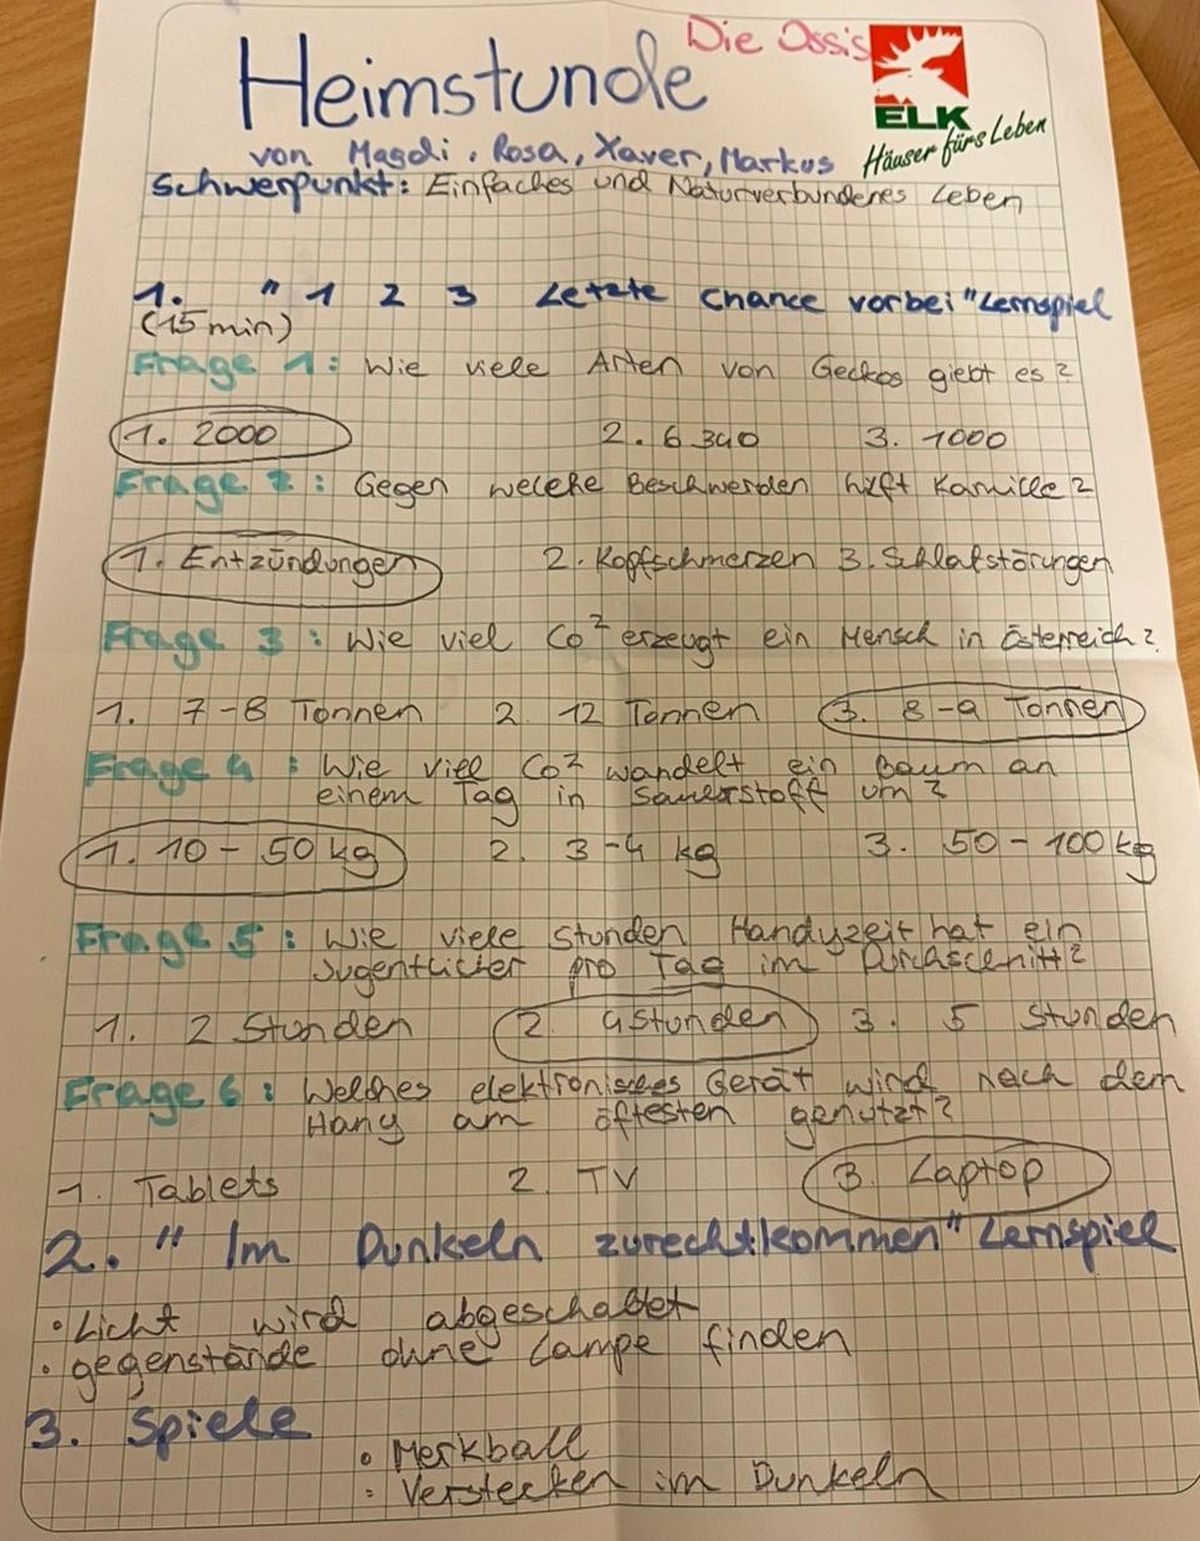 Die Ossis
Heimstunde
ELK
Häuser fürs Leben
von Magdi, Rosa, Xaver, Markus
Schwerpunkt: Einfaches und Naturverbundenes Leben
1. "1 2 3 Letzte Chance vorbei" Lernspiel
(15 min)
Frage 1: Wie viele Arten von Geckos giebt es?
1. 2000 2. 6 340 3. 1000
Frage 2: Gegen welche Beschwerden hilft Kamille?
1. Entzündungen 2. Kopfschmerzen 3. Schlafstörungen
Frage 3: Wie viel Co² erzeugt ein Mensch in Österreich?
1. 7-8 Tonnen 2. 12 Tonnen 3. 8-9 Tonnen
Frage 4: Wie viel Co² wandelt ein Baum an
einem Tag in Sauerstoff um?
1. 10 - 50 kg 2. 3-4 kg 3. 50 - 100 kg
Frage 5: Wie viele Stunden Handyzeit hat ein
Jugentlicher pro Tag im Durchschnitt?
1. 2 Stunden 2. 4 Stunden 3. 5 Stunden
Frage 6: Welches elektronisches Gerät wird nach dem
Hany am öftesten genutzt?
1. Tablets 2. TV 3. Laptop
2. "Im Dunkeln zurechtkommen" Lernspiel
• Licht wird abgeschaltet
• gegenstände ohne Lampe finden
3. Spiele
• Merkball
• Verstecken im Dunkeln